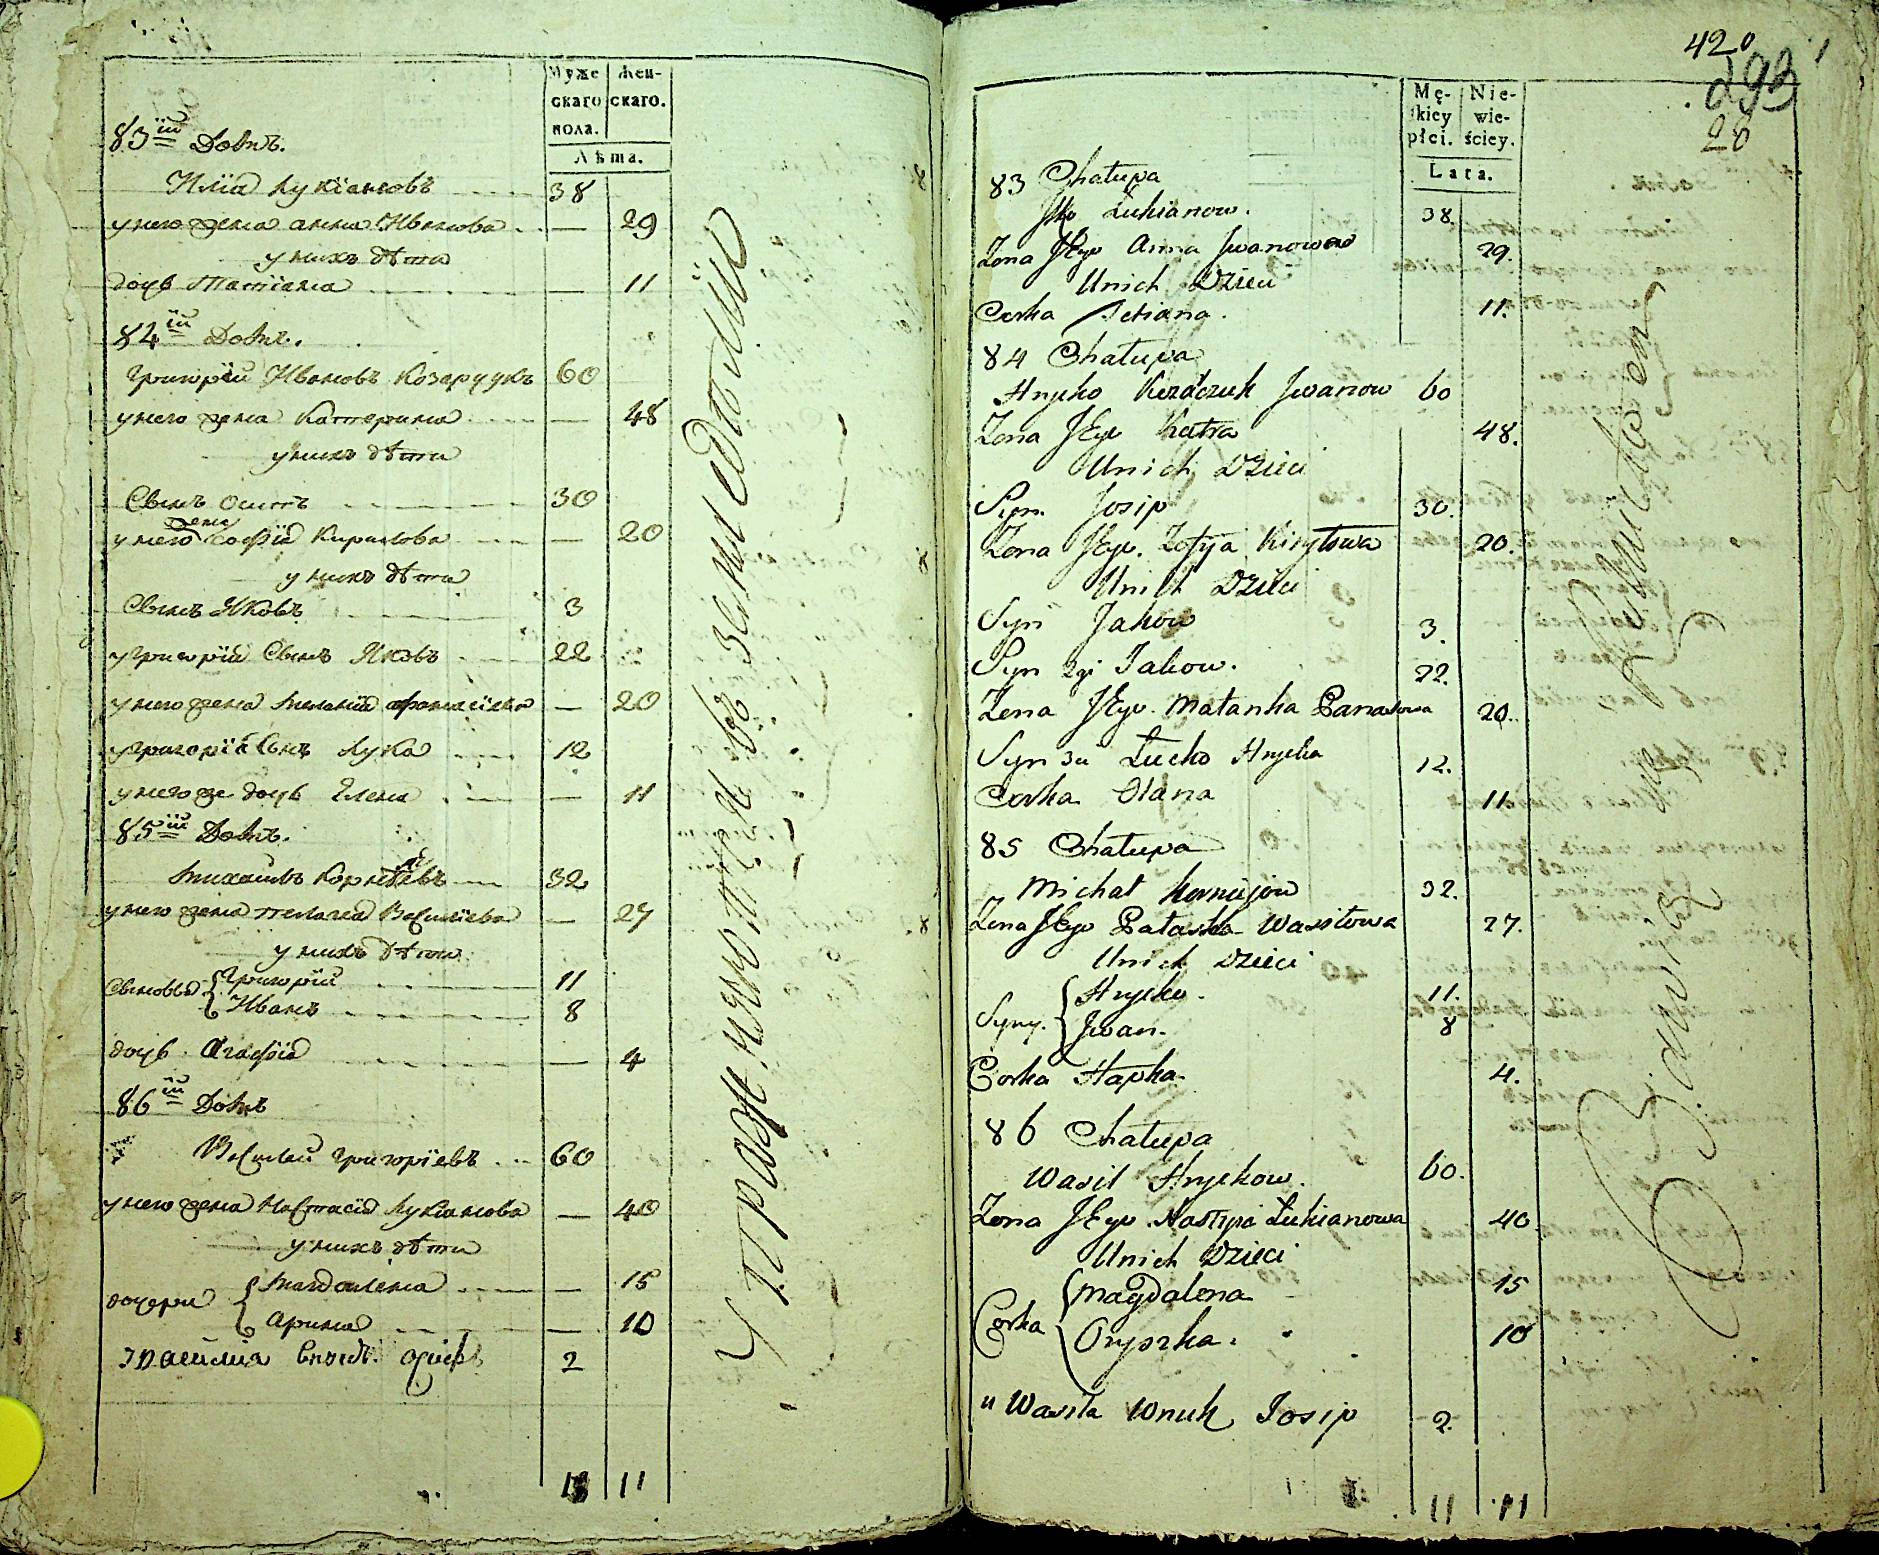 Муже
скаго
пола.
Жен-
скаго.
Лѣта.
83 ій Домъ.
Илїа Лукїановъ 38
у него жена анна Иванова — 29
у нихъ дѣти
дочь Татїана — 11
84 ій Домъ.
Григорїй Ивановъ Козарчукъ 60
у него жена Катерина — 48
у нихъ дѣти
Сынъ Осипъ 30
у него жена Софїа Кирилова — 20
у нихъ дѣти
Сынъ Яковъ 3
у Григорїа Сынъ Яковъ 22
у него жена Меланїа — 20
у Григорїа Сынъ Лука 12
у него же дочь Елена — 11
85 ій Домъ.
Михаилъ 32
у него жена Пелагеа Василїева — 27
у нихъ дѣти
Сыновья { Григорїй 11
Иванъ 8
дочь Агафїа — 4
86 ій Домъ
Василей Григорїевъ 60
у него жена Настасїа Лукїанова — 40
у нихъ дѣти
дочери { Магдалена — 15
Арина — 10
внукъ 2
11
420
293
20
Mę-
skiey
płci.
Nie-
wie-
ściey.
Lata.
83 Chałupa
Łukianow. 38.
Zona Jego Anna Jwanowa 29.
Unich Dzieci
Corka Tetiana. 11.
84 Chałupa
Hryćko Jwanow 60
Zona Jego Katra 48.
Unich Dzieci
Syn Josip 30.
Zona Jego Zofija Kiryłowa 20.
Unich Dzieci
Syn Jakow 3.
Syn 2gi Jakow. 22.
Zona Jego Małanka 20.
Syn 3ci Łucko Hryćka 12.
Corka Ołana 11.
85 Chałupa
Michał 32.
Zona Jego Pałaszka Wasilowa 27.
Unich Dzieci
Syny. { Hryćko. 11.
Jwan. 8
Corka Hapka 4.
86 Chałupa
Wasil Hryćkow. 60.
Zona Jego Nastzia Łukianowa 40
Unich Dzieci
Corka { Magdalena 15
Oryszka. 10
u Wasila Wnuk Josip 2.
11 11